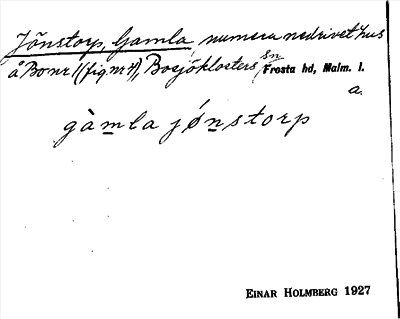 Jönstorp, Gamla, numera nedrivet hus
å Bo nr 1 (fig. nr 4), Bosjöklosters sn, Frosta hd, Malm. l.
a.
gàmla jǿnstorp
EINAR HOLMBERG 1927